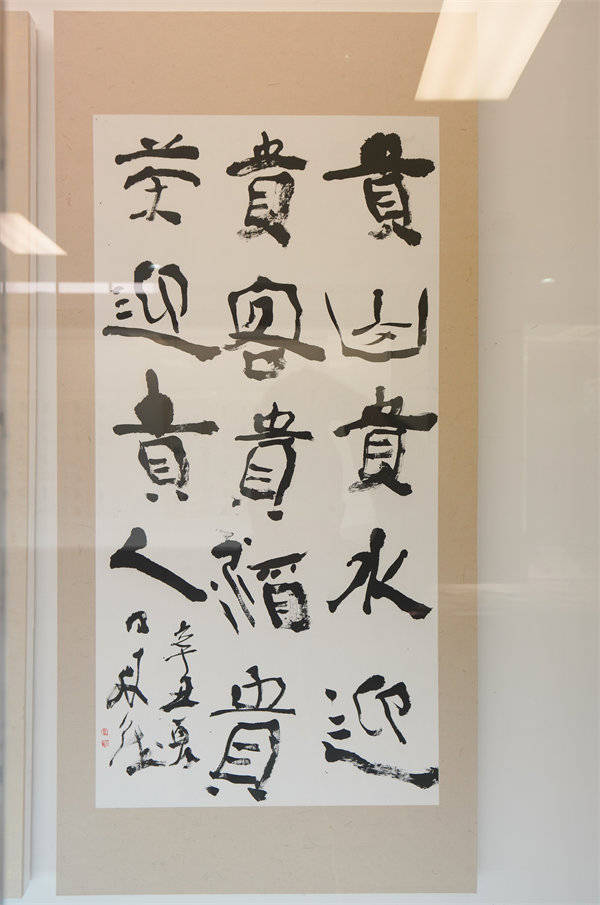 貴山貴水迎
貴客貴酒貴
茶迎貴人
辛丑夏